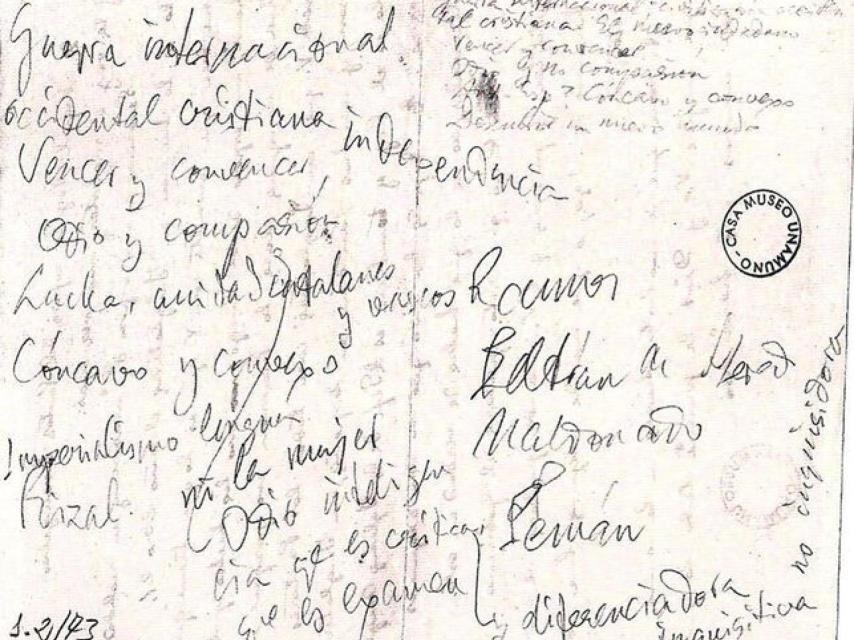 Guerra internacional
occidental cristiana independencia
Vencer y convencer,
Odio y compasión
Lucha, unidad catalanes
y vascos
Cóncavo y convexo
Imperialismo lengua
Rizal. ni la mujer
Odio inteligen
cia que es crítica
que es examen
diferenciadora
inquisitiva
no inquisidora
Ramos
Beltrán de Hered
Maldonado
Pemán
tal cristiana El nuevo
Vencer y convencer
Odio y no compasión
Cóncavo y convexo
Descubrir un nuevo mundo
CASA MUSEO UNAMUNO
1-2/43